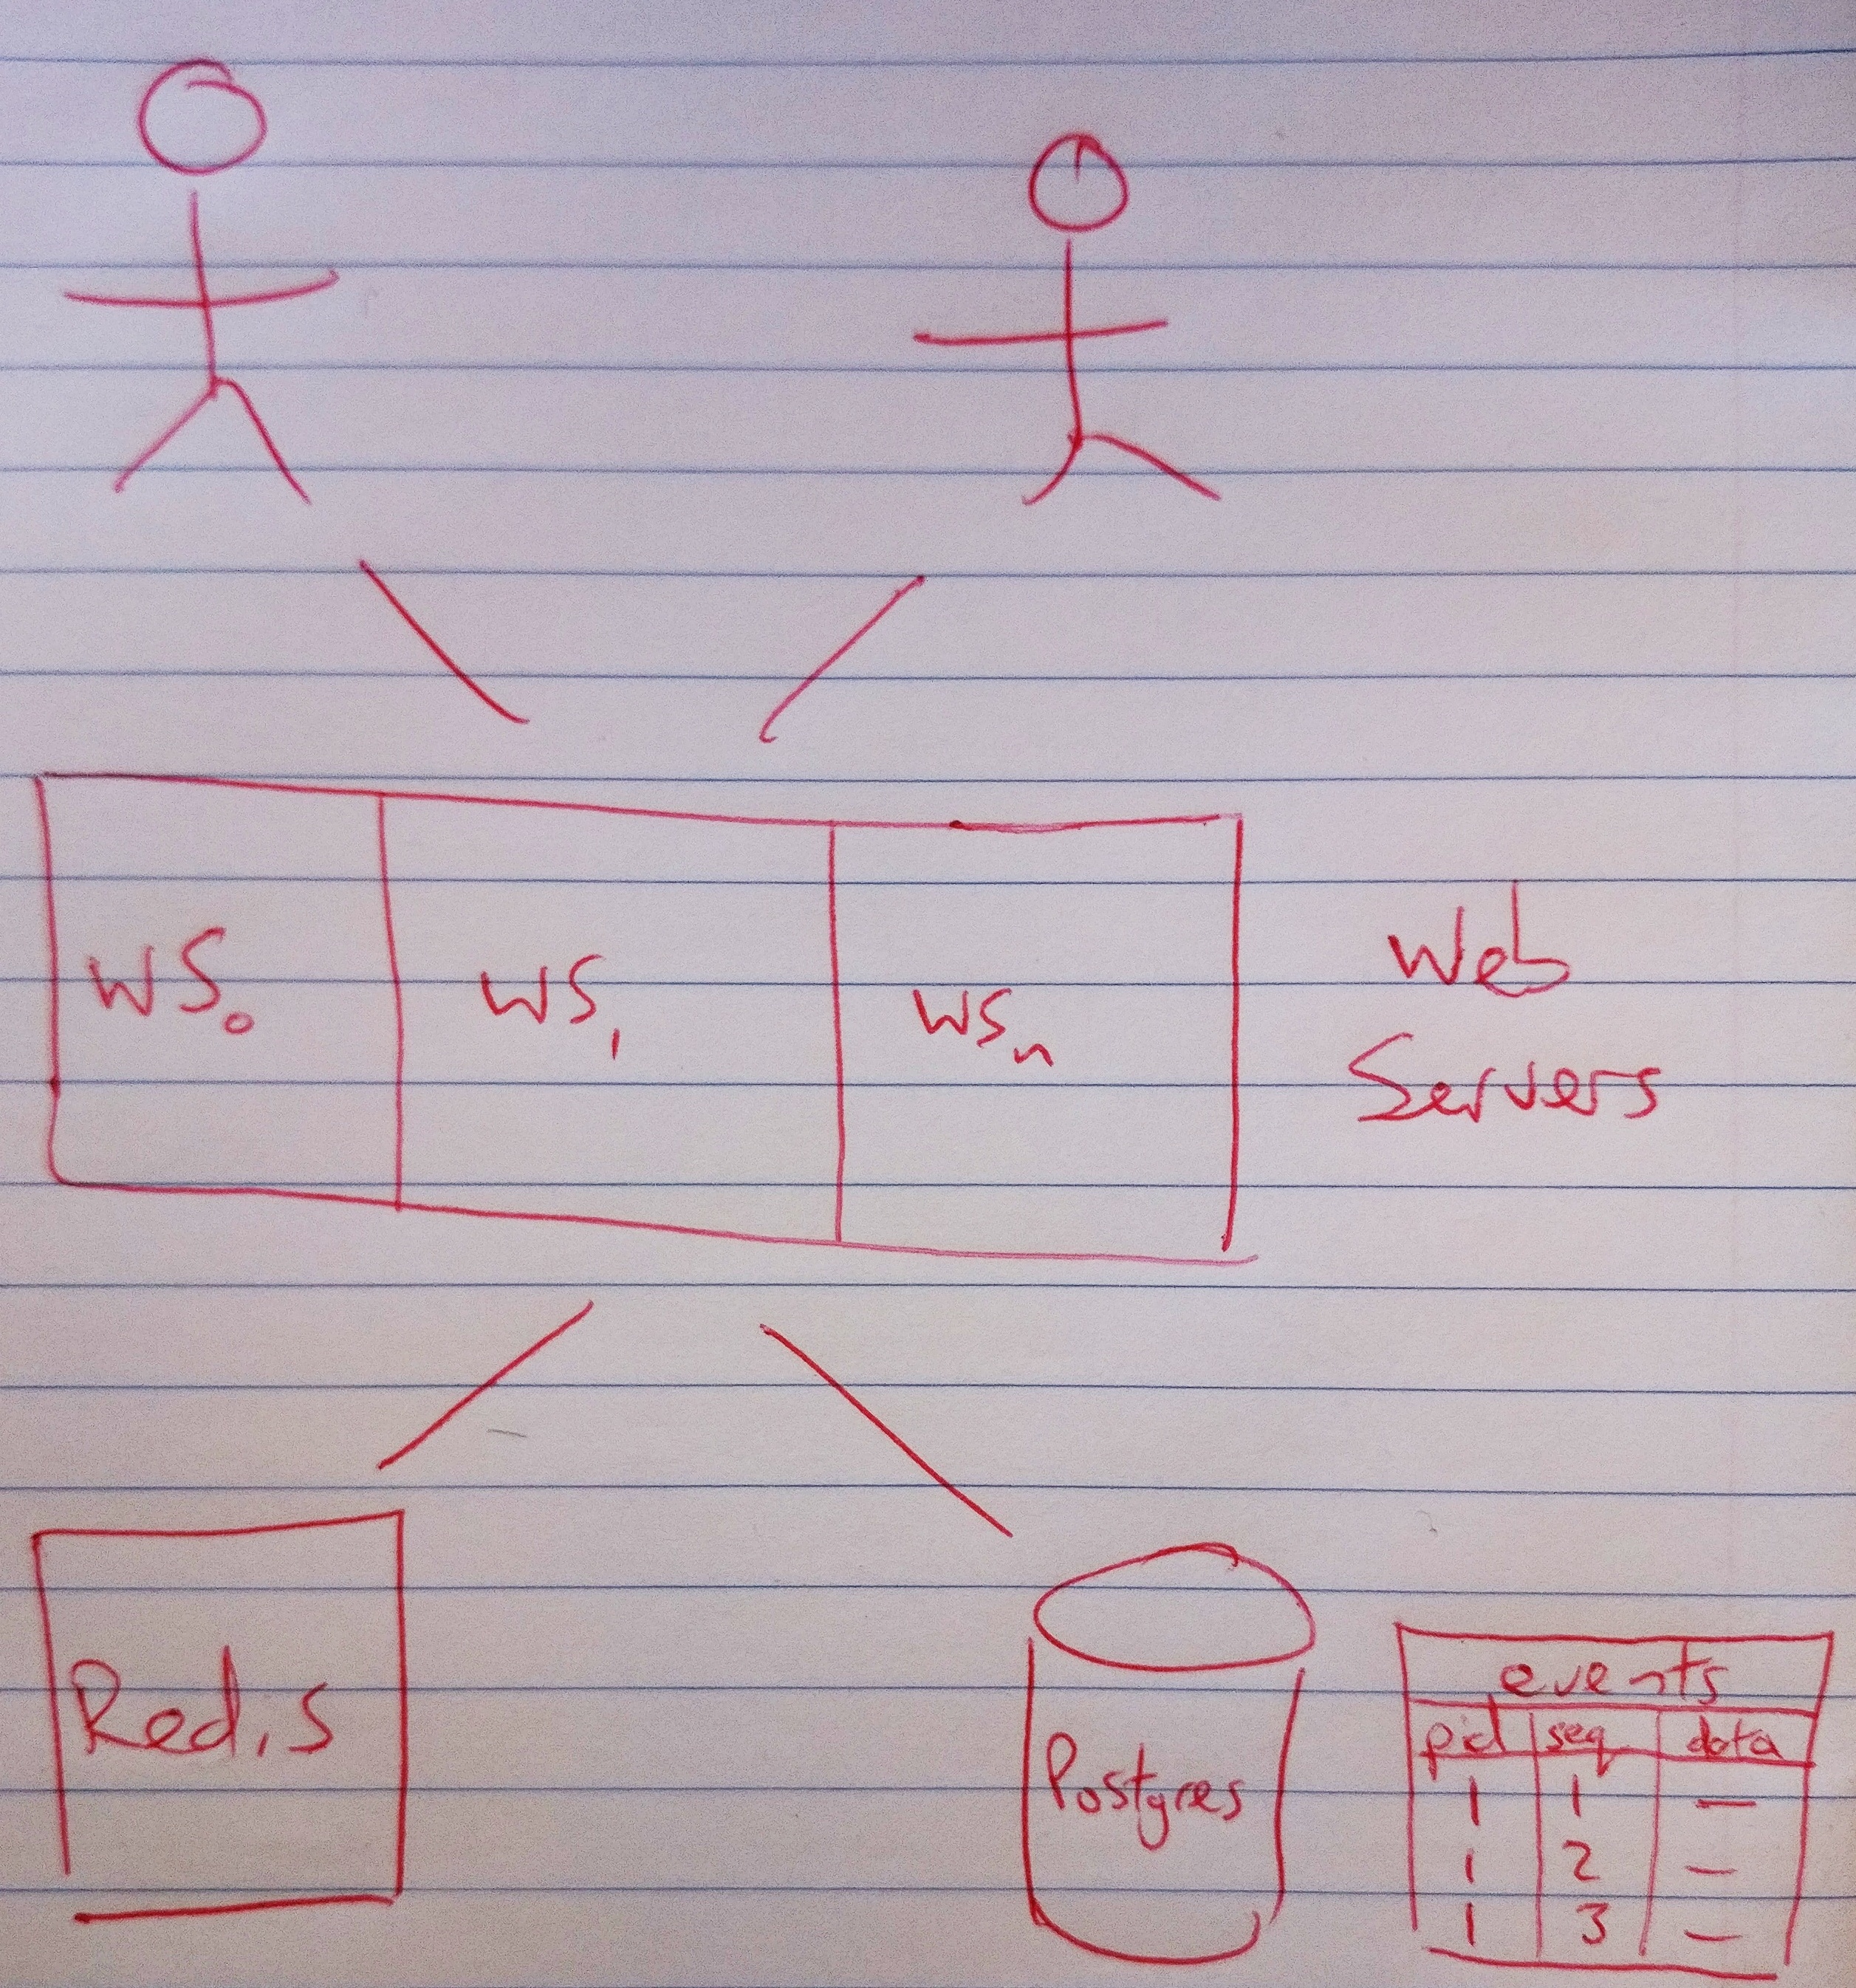 WS₀ WS₁ WSₙ
Web
Servers
Redis
Postgres
events
pid seq data
1 1 —
1 2 —
1 3 —